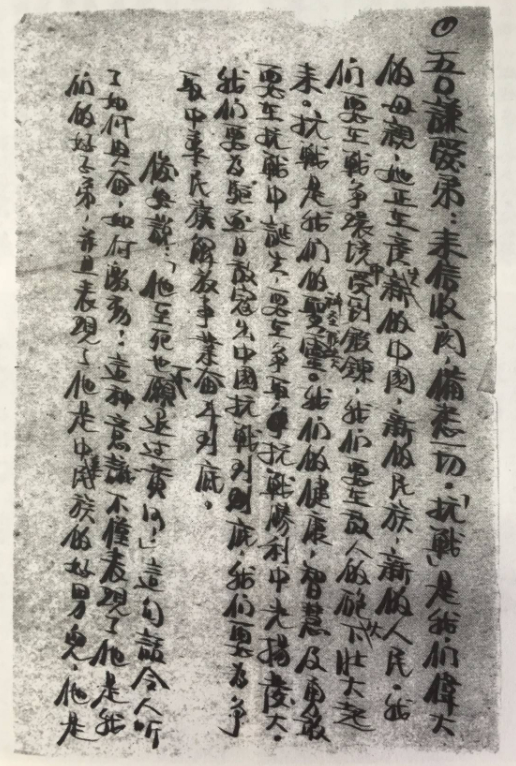 吾謙賢弟：來信收閱，備悉一切。「抗戰」是我們偉大
的母親，她正在產生新的中國，新的民族，新的人民。我
們要在戰爭環境中受到鍛鍊，我們要在敵人的砲火下壯大起
來。抗戰是我們的聖靈。我們的健康，智慧及勇敢
要在抗戰中誕生，要在爭取抗戰勝利中光揚發大。
我們要為驅逐日敵寇出中國抗戰到底，我們要為爭
取中華民族解放事業奮鬥到底。
俊生說：「他至死也不願退過黃河！」這句話令人听
了如何興奮，如何激動！這种意識不僅表現了他是我
們的好子弟，并且表現了他是中華民族的好男兒，他是